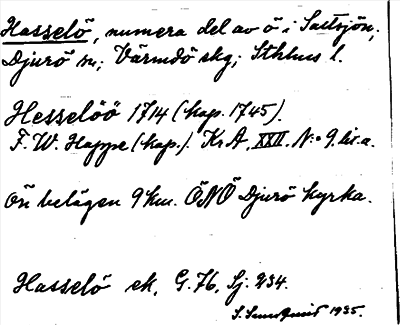 Hasselö, numera del av ö i Saltsjön,
Djurö sn; Värmdö skg; Sthlms l.
Hesselöö 1714 (kop. 1745).
F. W. Happe (kop.). Kr A, XXII. N:o 9. lit. a.
Ön belägen 9 km. ÖNÖ Djurö kyrka.
Hasselö ek. G. 76, Sj. 234.
1935.